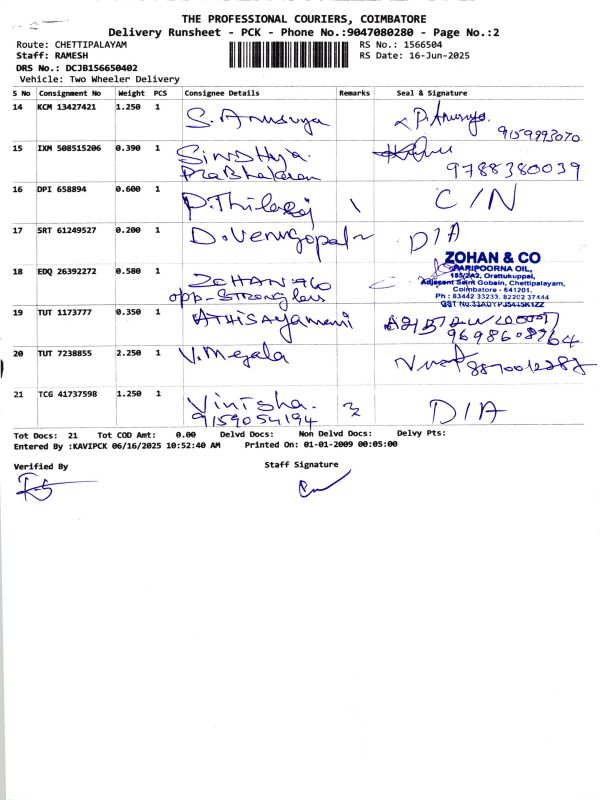 THE PROFESSIONAL COURIERS, COIMBATORE
Delivery Runsheet - PCK - Phone No.:9047080280 - Page No.:2
Route: CHETTIPALAYAM RS No.: 1566504
Staff: RAMESH RS Date: 16-Jun-2025
DRS No.: DCJB156650402
Vehicle: Two Wheeler Delivery
S No Consignment No Weight PCS Consignee Details Remarks Seal & Signature
14 KCM 13427421 1.250 1 S. Anusuya P. Anusuya
9159993070
15 IXM 508515206 0.390 1 Sindhya 9788380039
Prabhakaran
16 DPI 658894 0.600 1 P. Thilagaj \ C/N
17 SRT 61249527 0.200 1 D. Venugopal D/A
ZOHAN & CO
PARIPOORNA OIL,
155/2A2, Orattukuppai,
18 EDQ 26392272 0.580 1 ZOHAN Adjacent Saint Gobain, Chettipalayam,
Coimbatore - 641201.
opp-Strong Ph : 83442 33233, 82202 37444
GST No.
19 TUT 1173777 0.350 1 Athisayamani
9698608764
20 TUT 7238855 2.250 1 V. Megala
21 TCG 41737598 1.250 1 Vinisha. D/A
9159054194
Tot Docs: 21 Tot COD Amt: 0.00 Delvd Docs: Non Delvd Docs: Delvy Pts:
Entered By :KAVIPCK 06/16/2025 10:52:40 AM Printed On: 01-01-2009 00:05:00
Verified By Staff Signature